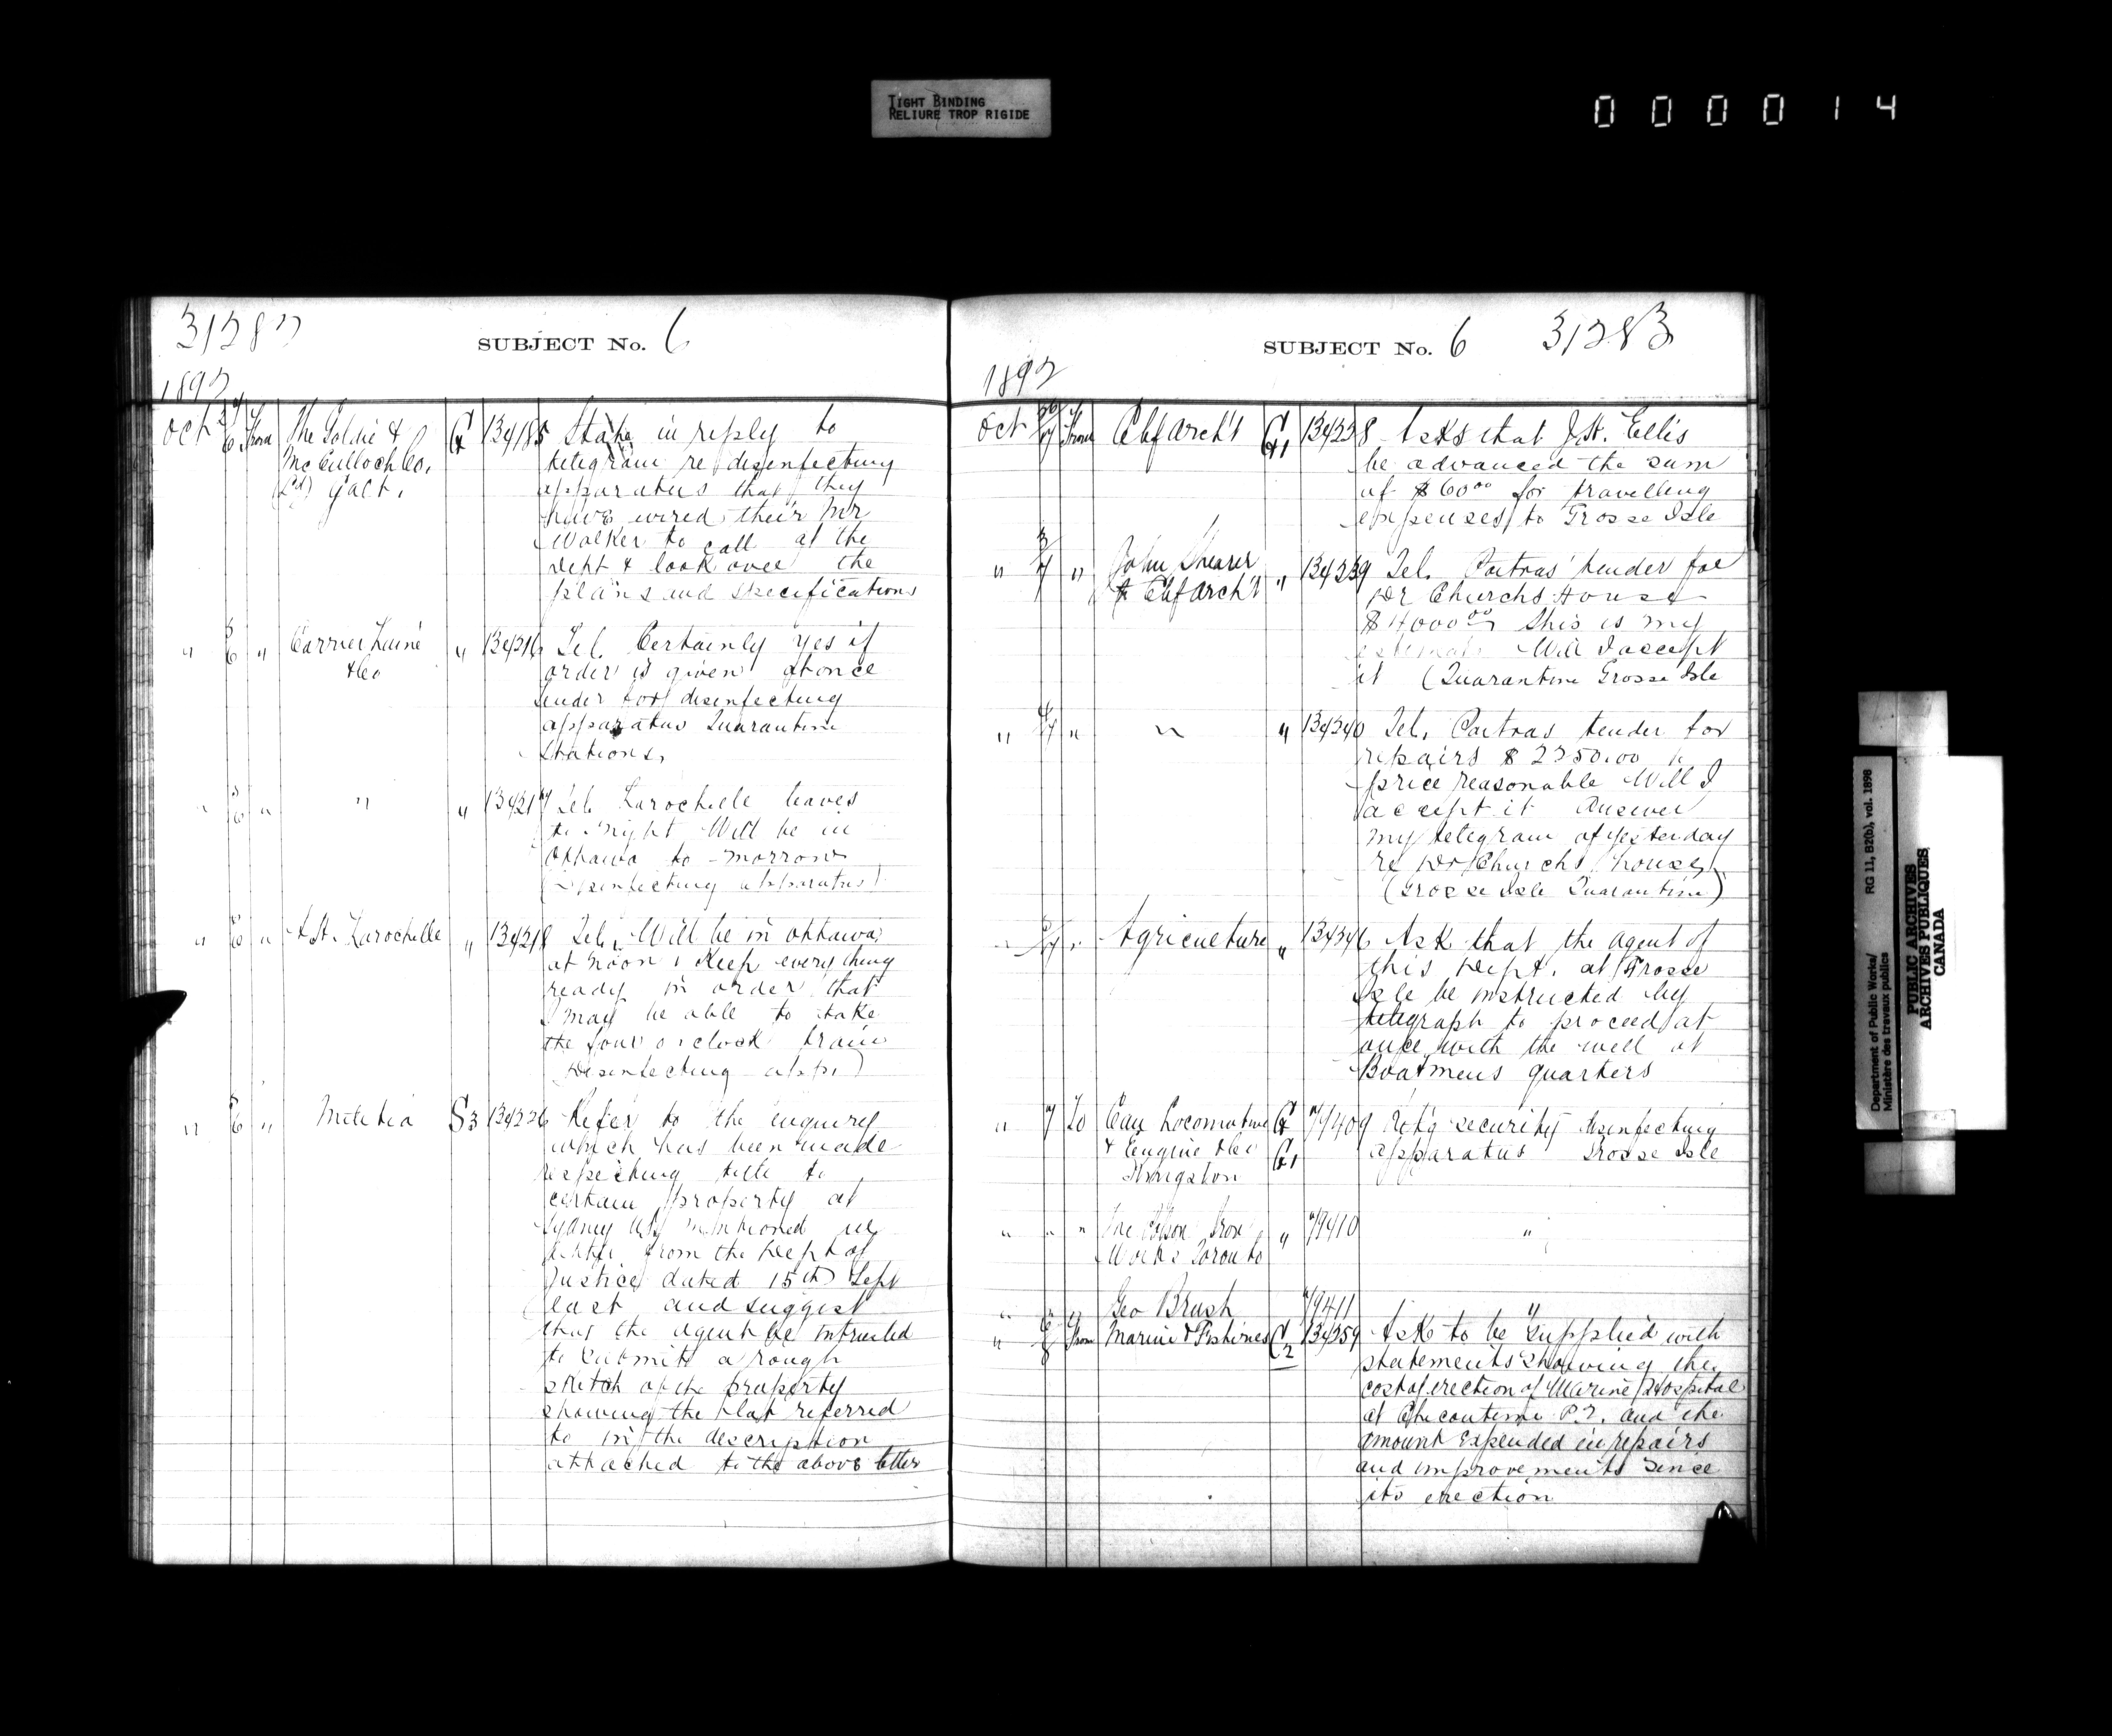 TIGHT BINDING
RELIURE TROP RIGIDE
000014
31282
SUBJECT No. 6
1892
Oct 4/6 From The Goldie & McCulloch Co. (Ld) Galt. G 134185 State in reply to
telegram re disinfecting
apparatus that they
have wired their Mr
Walker to call at the
Dept & look over the
plans and specifications
" 5/6 " Carrier Lainé & Co " 134216 Tel. Certainly yes if
order is given at once
tender for disinfecting
apparatus Quarantine
Stations.
" 5/6 " " " 134217 Tel. Larochelle leaves
to-night Will be in
Ottawa to-morrow
(Disinfecting apparatus)
" 6 " A.H. Larochelle " 134218 Tel. Will be in Ottawa
at noon. Keep everything
ready in order that
I may be able to take
the four o'clock train
Disinfecting app.)
" 5/6 " Militia S3 134226 Refer to the enquiry
which has been made
respecting title to
certain property at
Sydney as mentioned in
letter from the Dept of
Justice dated 15th Sept
last and suggest
that the agent be intructed
to submit a rough
sketch of the property
showing the plat referred
to in the description
attached to the above letter
SUBJECT No. 6 31283
1892
Oct 7 From Chf Archt G1 134238 Asks that J.H. Ellis
be advanced the sum
of $60 00 for travelling
expenses to Grosse Isle
" 3/7 " John Shearer to Chf Archt " 134239 Tel. Poitras' tender for
Dr Churchs House
$4000 00 This is my
estimate Will I accept
it (Quarantine Grosse Isle
" 4/7 " " " 134240 Tel. Poitras tender for
repairs $2250.00
price reasonable Will I
accept it Answer
my telegram of yesterday
re Dr Churchs house
(Grosse Isle Quarantine)
" 7 " Agriculture " 134246 Ask that the agent of
this Dept. at Grosse
Isle be instructed by
telegraph to proceed at
once with the well at
Boatmens quarters
" 7 To Can Locomotive & Engine Co Kingston G G1 79409 Retg security disinfecting
apparatus Grosse Isle
" " " The Polson Iron Works Toronto " 79410 "
" " Geo Brush 79411 "
" 6/8 From Marine & Fisheries C2 134259 Ask to be supplied with
statements showing the
cost of erection of Marine Hospital
at Chicoutimi P.Q. and the
amount expended in repairs
and improvements since
its erection
Department of Public Works/
Ministère des travaux publics
RG 11, B2(b), vol. 1898
PUBLIC ARCHIVES
ARCHIVES PUBLIQUES
CANADA